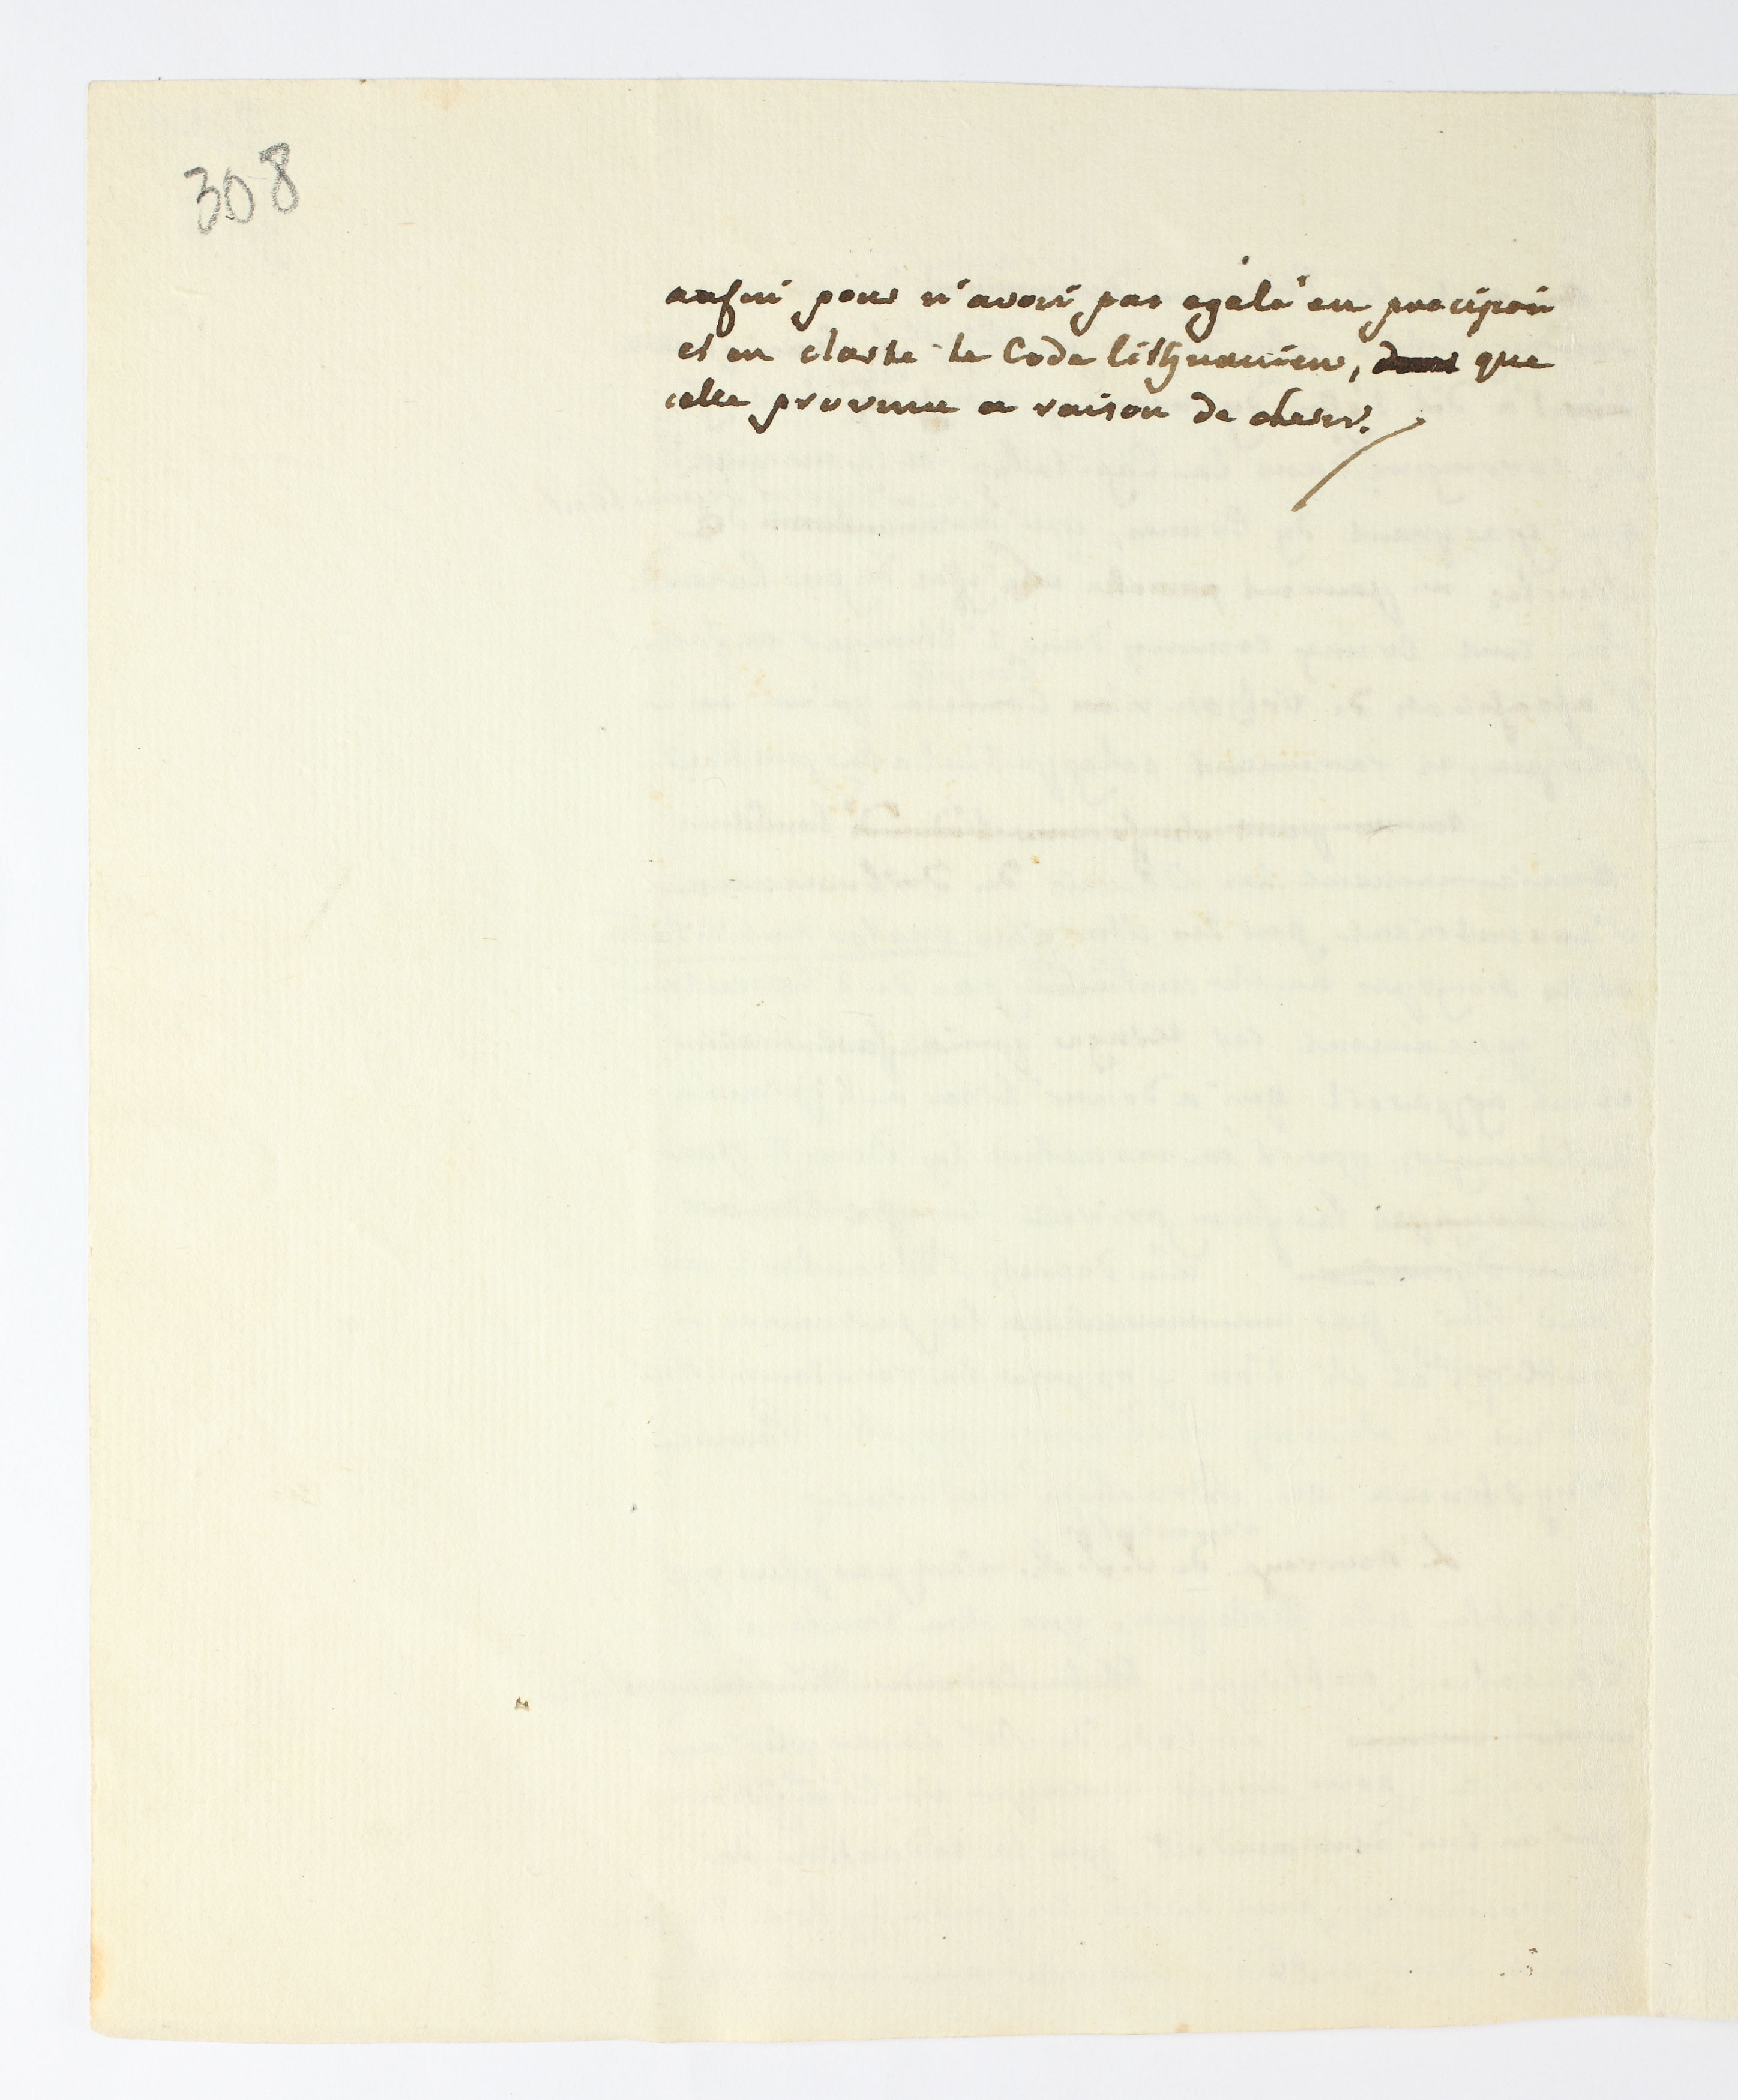 308
enfin pour n'avoir pas egalé en precision
et en clarté le Code lithuanien, que
cette province a raison de cherir.